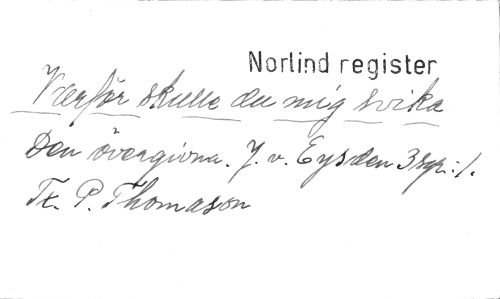 Norlind register
Varför skulle du mig svika
Den övergivna. J. v. Eysden 3 sgr :/.
Tx. P. Thomason